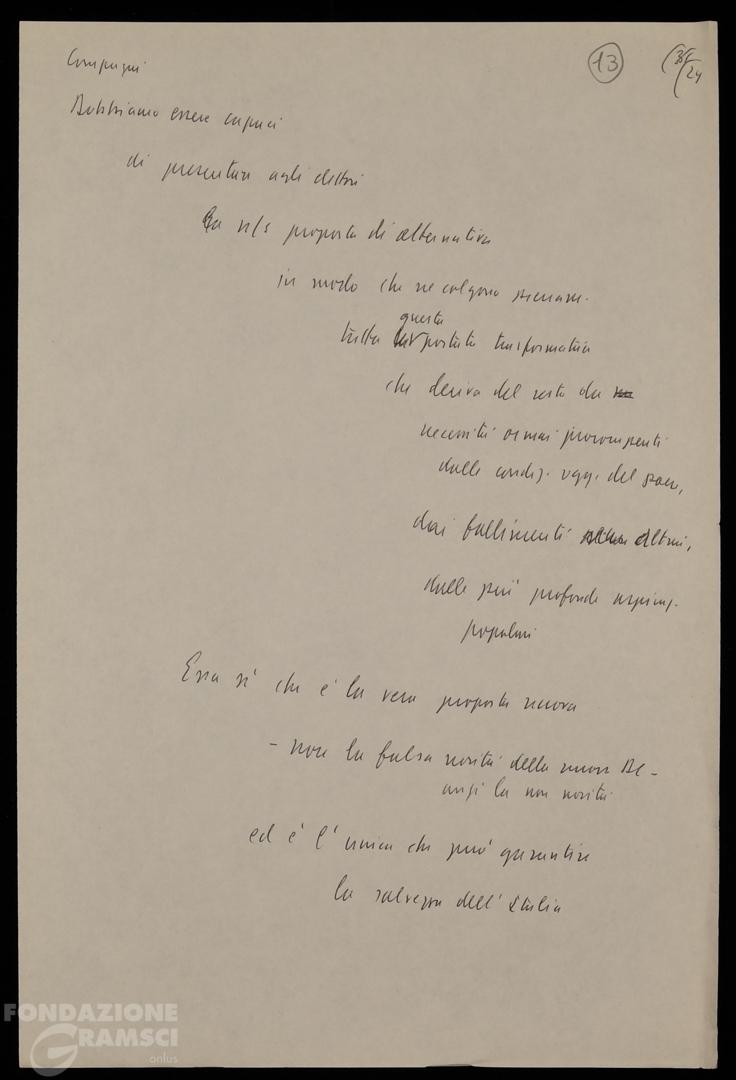 13
Compagni
Dobbiamo essere capaci
di presentare agli elettori
la n/s proposta di alternativa
in modo che ne colgano pienam.
questa
tutta portata trasformatrice
che deriva del resto da
necessità ormai prorompenti
dalle condiz. oggi. del paese,
dai fallimenti altrui,
dalle più profonde aspiraz.
popolari
Essa sì che è la vera proposta nuova
- non la falsa novità della nuova DC -
anzi la non novità
ed è l'unica che può garantire
la salvezza dell'Italia
FONDAZIONE
GRAMSCI
onlus